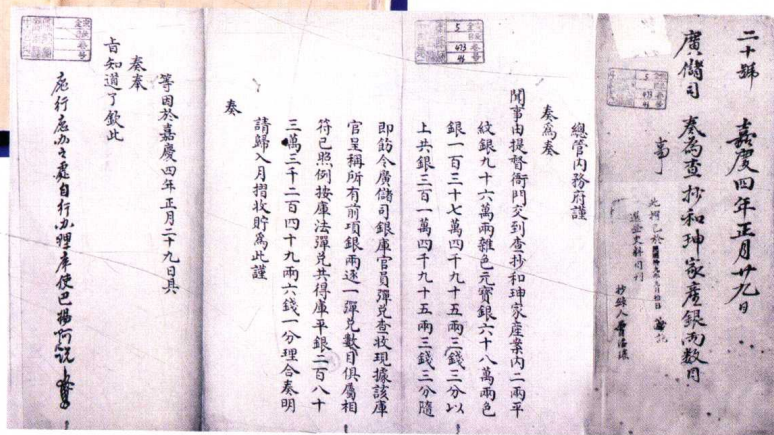 二十號
嘉慶四年正月廿九日
廣儲司
奏為查抄和珅家產銀兩数目
事
此摺已於
抄錄人
總管內務府謹
奏為奏
聞事由提督衙門交到查抄和珅家産案內二兩平
紋銀九十六萬兩雜色元寶銀六十八萬兩色
銀一百三十七萬四千九十五兩三錢三分以
上共銀三百一萬四千九十五兩三錢三分隨
即飭令廣儲司銀庫官員彈兌查收現據該庫
官呈稱所有前項銀兩逐一彈兌數目俱屬相
符已照例按庫法彈兌共得庫平銀二百八十
三萬三千二百四十九兩六錢一分理合奏明
請歸入月摺收貯爲此謹
奏
等因於嘉慶四年正月二十九日具
奏奉
旨知道了欽此
應行應办之處自行办理庫使巴揚阿說